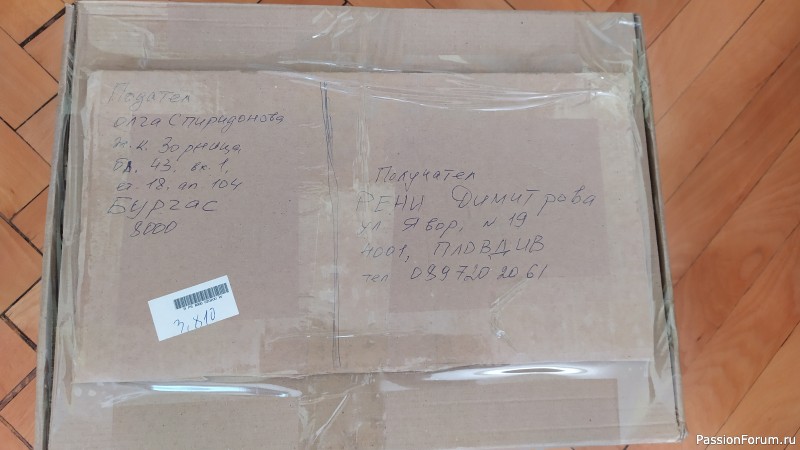 Подател
Олга Спиридонова
ж.к. Зорница,
бл. 43. вх. 1,
ет. 18. ап. 104
Бургас
8000
Получател
РЕНИ ДИМИТРОВА
ул Явор, N 19
4001, ПЛОВДИВ
тел 089 720 20 61
3,810
PassionForum.ru